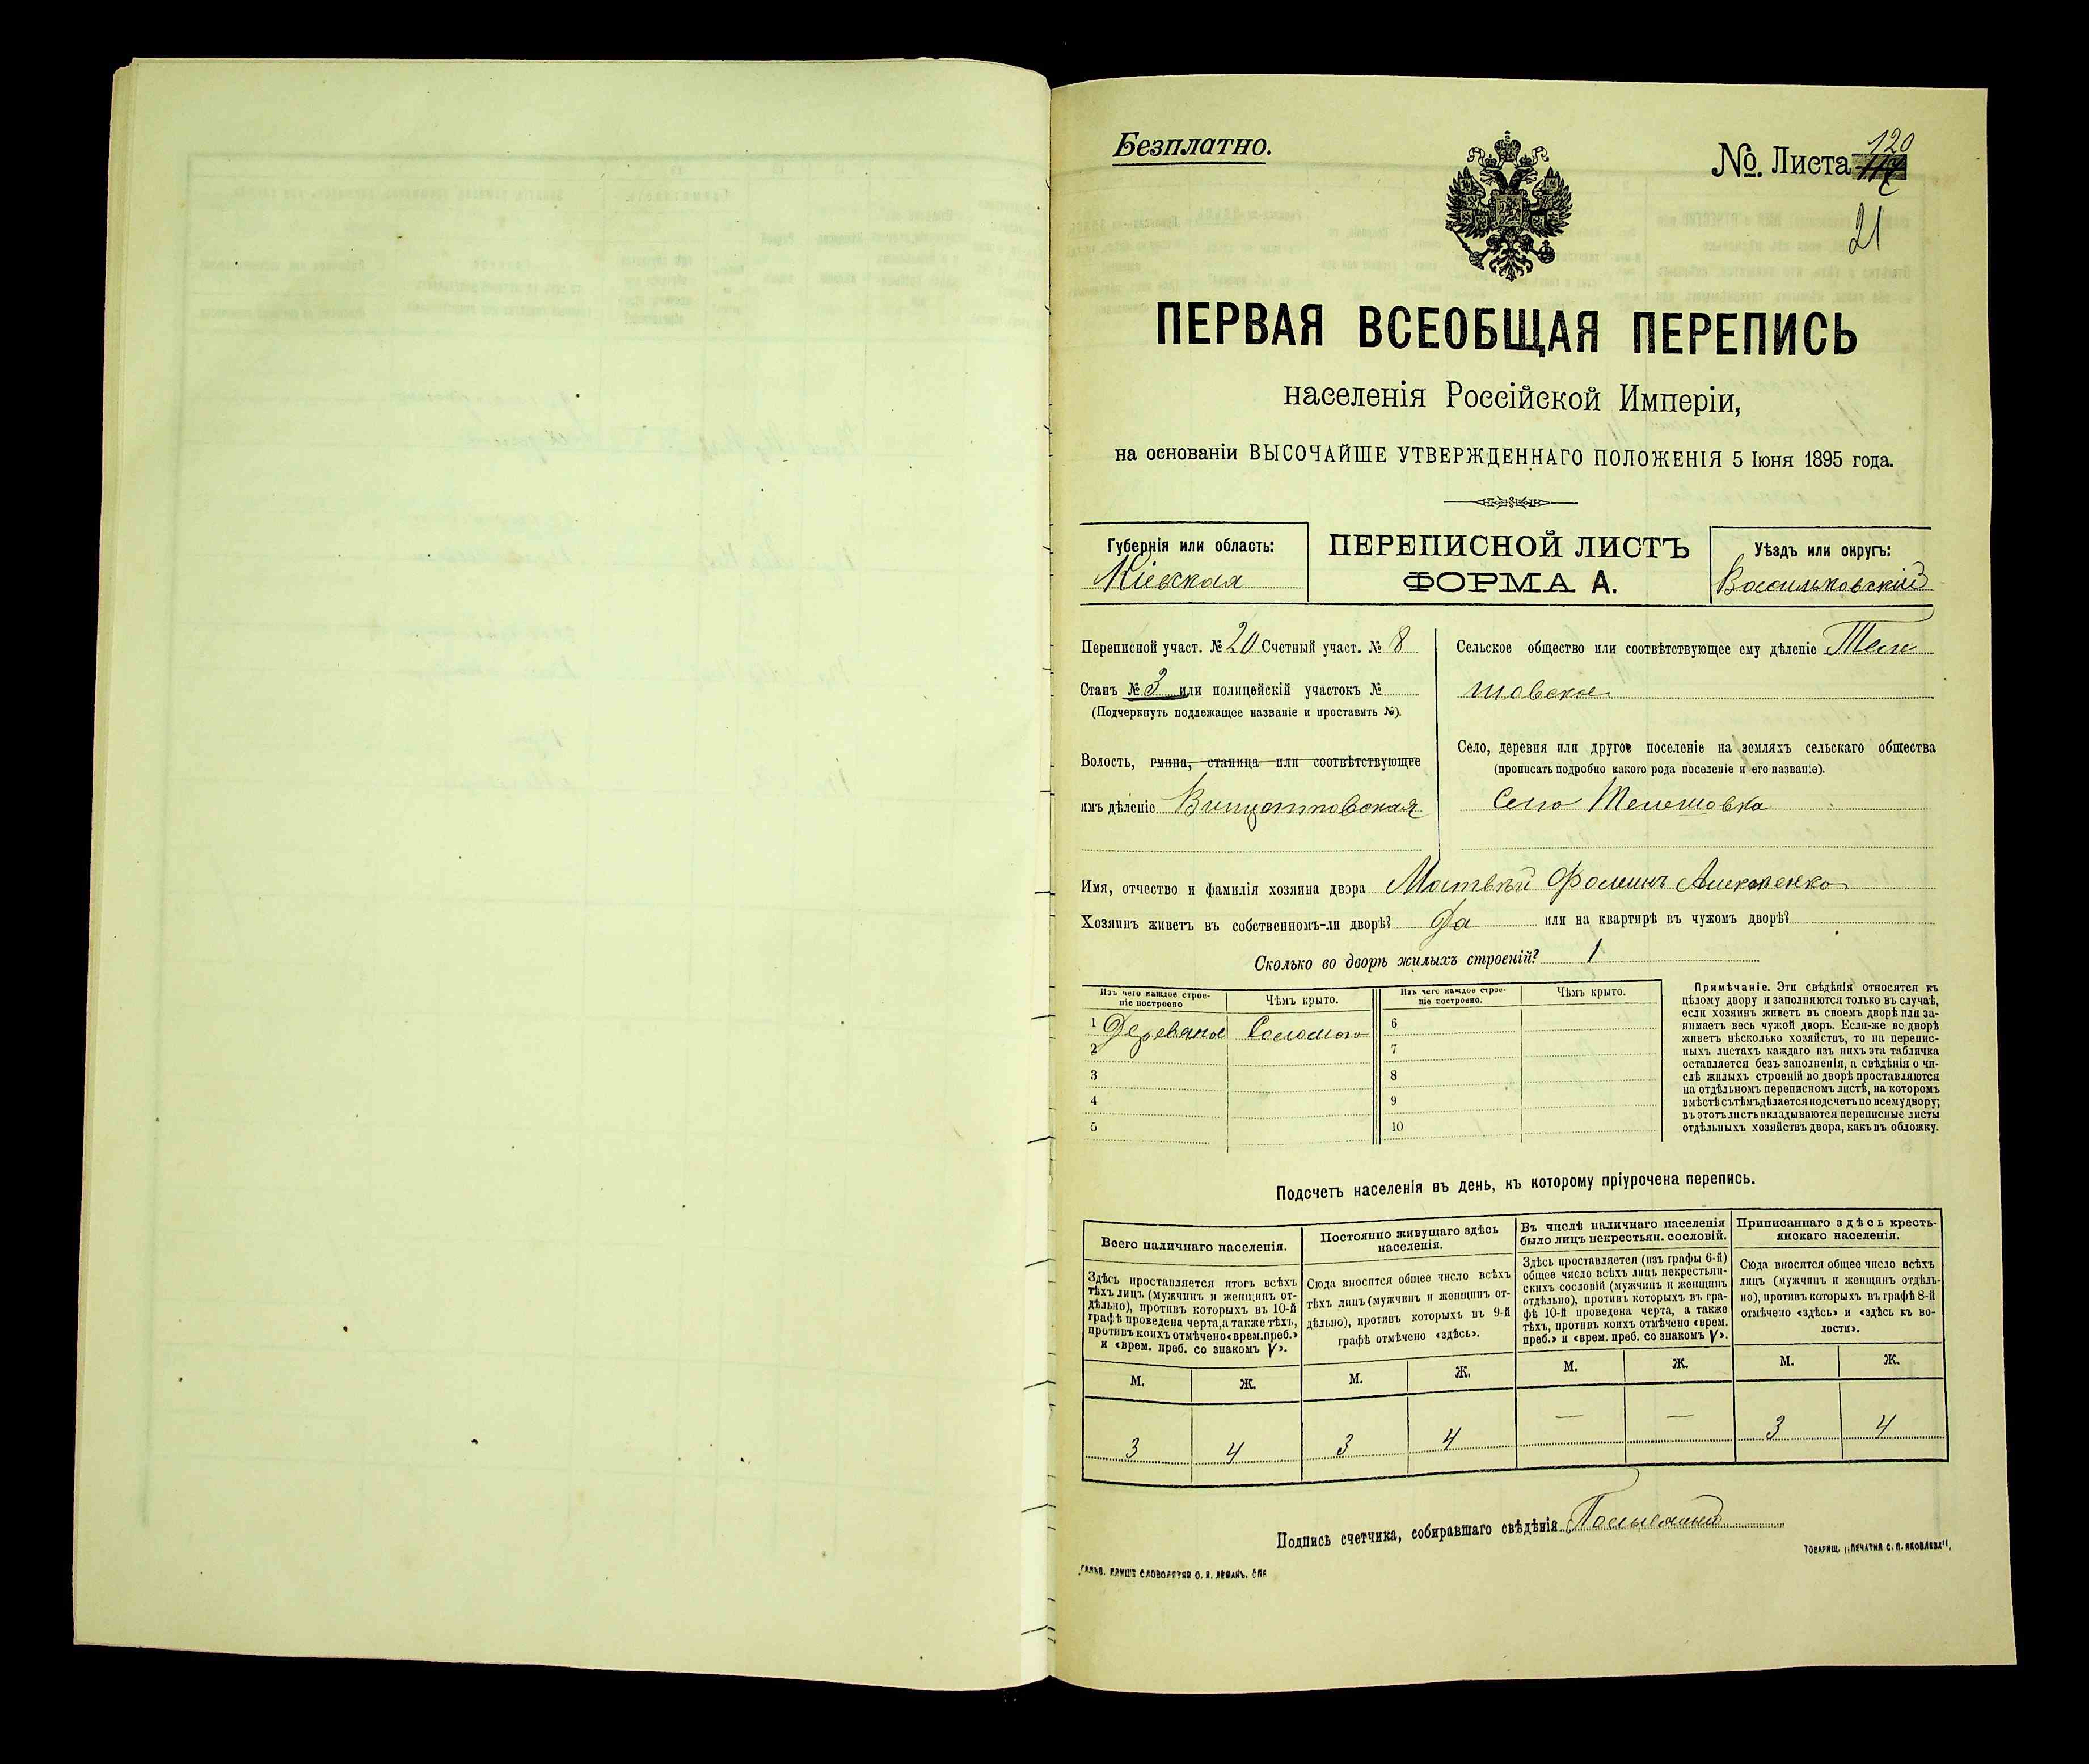 Безплатно.
№. Листа 120
21
ПЕРВАЯ ВСЕОБЩАЯ ПЕРЕПИСЬ
населенія Россійской Имперіи,
на основаніи ВЫСОЧАЙШЕ УТВЕРЖДЕННАГО ПОЛОЖЕНІЯ 5 Іюня 1895 года.
Губернія или область:
Кіевская
ПЕРЕПИСНОЙ ЛИСТЪ
ФОРМА А.
Уѣздъ или округъ:
Васильковскій
Переписной участ. № 20 Счетный участ. № 8
Станъ № 3 или полицейскій участокъ №
(Подчеркнуть подлежащее названіе и проставить №).
Волость, гмина, станица или соотвѣтствующее
имъ дѣленіе Винцентовская
Сельское общество или соотвѣтствующее ему дѣленіе Теле
шовское
Село, деревня или другое поселеніе на земляхъ сельскаго общества
(прописать подробно какого рода поселеніе и его названіе).
Село Телешовка
Имя, отчество и фамилія хозяина двора Матвѣй Фоминъ
Хозяинъ живетъ въ собственномъ-ли дворѣ? Да или на квартирѣ въ чужомъ дворѣ?
Сколько во дворѣ жилыхъ строеній? 1
Изъ чего каждое строе-
ніе построено
Чѣмъ крыто.
Изъ чего каждое строе-
ніе построено.
Чѣмъ крыто.
1 Деревяное Соломою
2
3
4
5
6
7
8
9
10
Примѣчаніе. Эти свѣдѣнія относятся къ
цѣлому двору и заполняются только въ случаѣ,
если хозяинъ живетъ въ своемъ дворѣ или за-
нимаетъ весь чужой дворъ. Если-же во дворѣ
живетъ нѣсколько хозяйствъ, то на перепис-
ныхъ листахъ каждаго изъ нихъ эта табличка
оставляется безъ заполненія, а свѣдѣнія о чи-
слѣ жилыхъ строеній во дворѣ проставляются
на отдѣльномъ переписномъ листѣ, на которомъ
вмѣстѣ съ тѣмъ дѣлается подсчетъ по всему двору;
въ этотъ листъ вкладываются переписные листы
отдѣльныхъ хозяйствъ двора, какъ въ обложку.
Подсчетъ населенія въ день, къ которому пріурочена перепись.
Всего наличнаго населенія.
Постоянно живущаго здѣсь
населенія.
Въ числѣ наличнаго населенія
было лицъ некрестьян. сословій.
Приписаннаго здѣсь кресть-
янскаго населенія.
Здѣсь проставляется итогъ всѣхъ
тѣхъ лицъ (мужчинъ и женщинъ от-
дѣльно), противъ которыхъ въ 10-й
графѣ проведена черта, а также тѣхъ,
противъ коихъ отмѣчено «врем. преб.»
и «врем. преб. со знакомъ V».
Сюда вносится общее число всѣхъ
тѣхъ лицъ (мужчинъ и женщинъ от-
дѣльно), противъ которыхъ въ 9-й
графѣ отмѣчено «здѣсь».
Здѣсь проставляется (изъ графы 6-й)
общее число всѣхъ лицъ некрестьян-
скихъ сословій (мужчинъ и женщинъ
отдѣльно), противъ которыхъ въ гра-
фѣ 10-й проведена черта, а также
тѣхъ, противъ коихъ отмѣчено «врем.
преб.» и «врем. преб. со знакомъ V».
Сюда вносится общее число всѣхъ
лицъ (мужчинъ и женщинъ отдѣль-
но), противъ которыхъ въ графѣ 8-й
отмѣчено «здѣсь» и «здѣсь къ во-
лости».
М. Ж. М. Ж. М. Ж. М. Ж.
3 4 3 4 — — 3 4
Подпись счетчика, собиравшаго свѣдѣнія
ТОВАРИЩ. „ПЕЧАТНЯ С. П. ЯКОВЛЕВА".